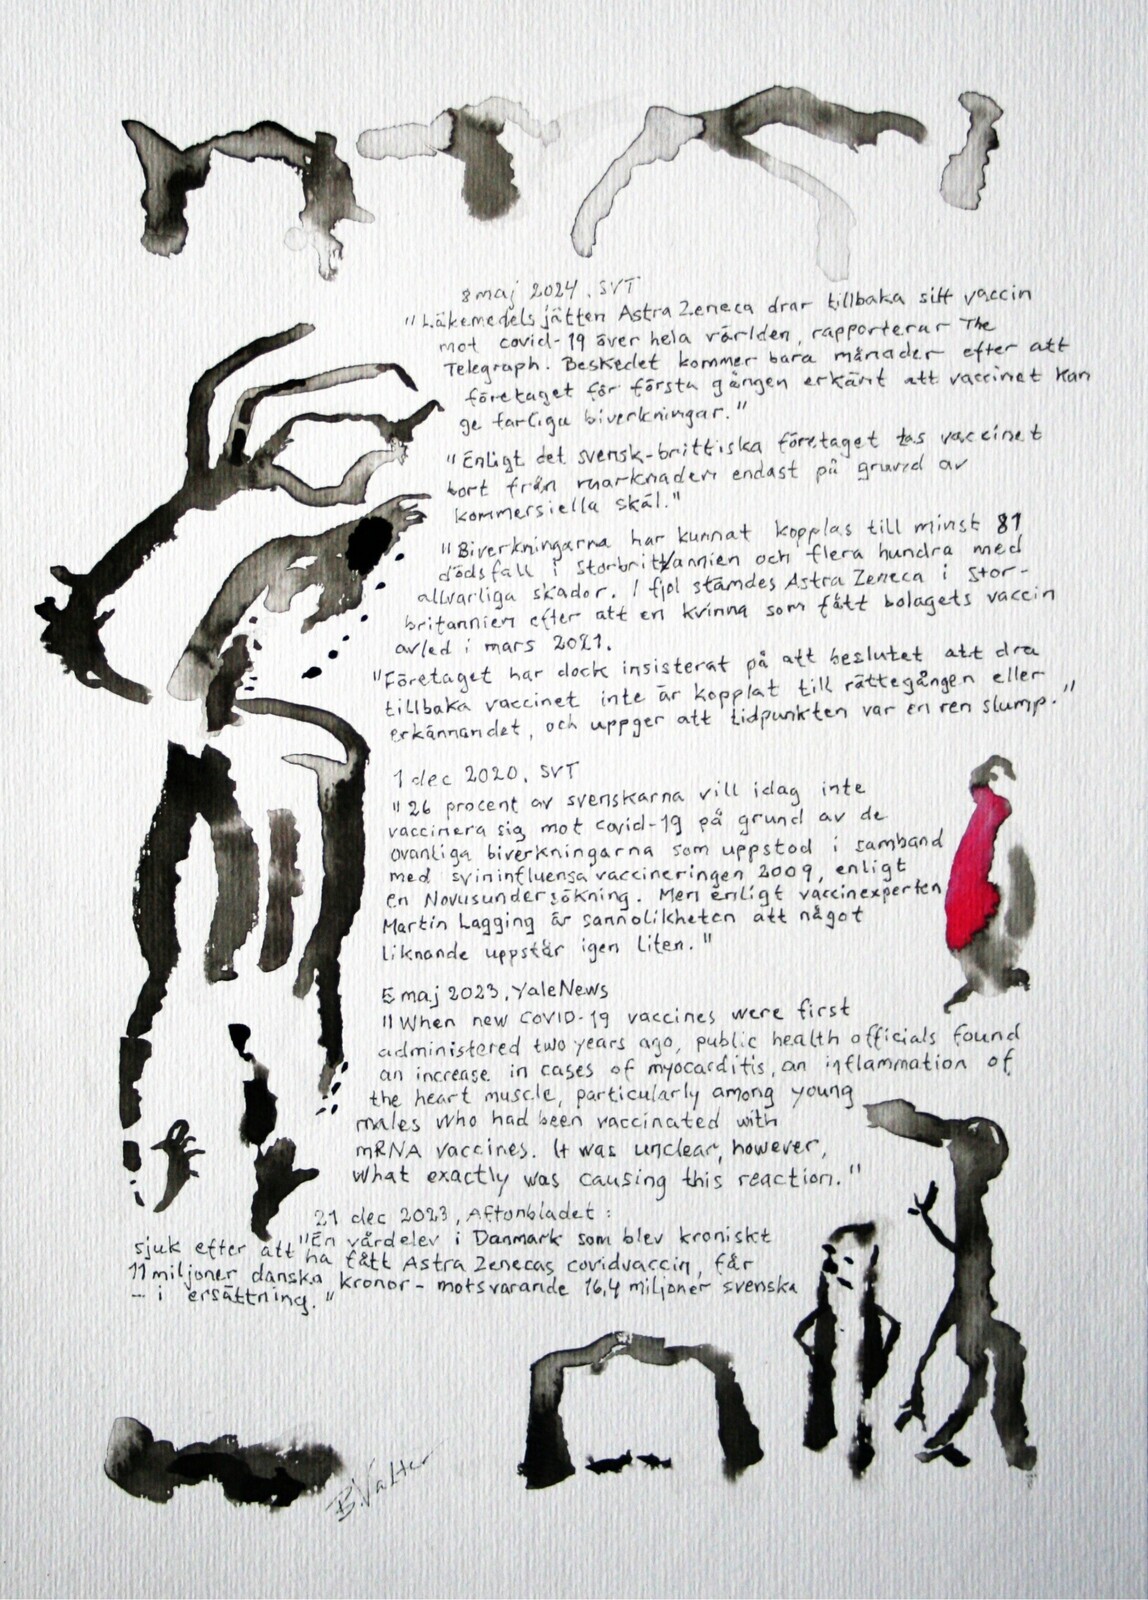 8 maj 2024, SVT
"Läkemedelsjätten Astra Zeneca drar tillbaka sitt vaccin
mot covid-19 över hela världen, rapporterar The
Telegraph. Beskedet kommer bara månader efter att
företaget för första gången erkänt att vaccinet kan
ge farliga biverkningar."
"Enligt det svensk-brittiska företaget tas vaccinet
bort från marknaden endast på grund av
kommersiella skäl."
"Biverkningarna har kunnat kopplas till minst 81
dödsfall i Storbritannien och flera hundra med
allvarliga skador. I fjol stämdes Astra Zeneca i Stor-
britannien efter att en kvinna som fått bolagets vaccin
avled i mars 2021.
"Företaget har dock insisterat på att beslutet att dra
tillbaka vaccinet inte är kopplat till rättegången eller
erkännandet, och uppger att tidpunkten var en ren slump."
1 dec 2020, SVT
"26 procent av svenskarna vill idag inte
vaccinera sig mot covid-19 på grund av de
ovanliga biverkningarna som uppstod i samband
med svininfluensavaccineringen 2009, enligt
en Novusundersökning. Men enligt vaccinexperten
Martin Lagging är sannolikheten att något
liknande uppstår igen liten."
5 maj 2023, YaleNews
"When new COVID-19 vaccines were first
administered two years ago, public health officials found
an increase in cases of myocarditis, an inflammation of
the heart muscle, particularly among young
males who had been vaccinated with
mRNA vaccines. It was unclear, however,
what exactly was causing this reaction."
21 dec 2023, Aftonbladet:
"En vårdelev i Danmark som blev kroniskt
sjuk efter att ha fått Astra Zenecas covidvaccin, får
11 miljoner danska kronor - motsvarande 16,4 miljoner svenska
- i ersättning."
B. Valter